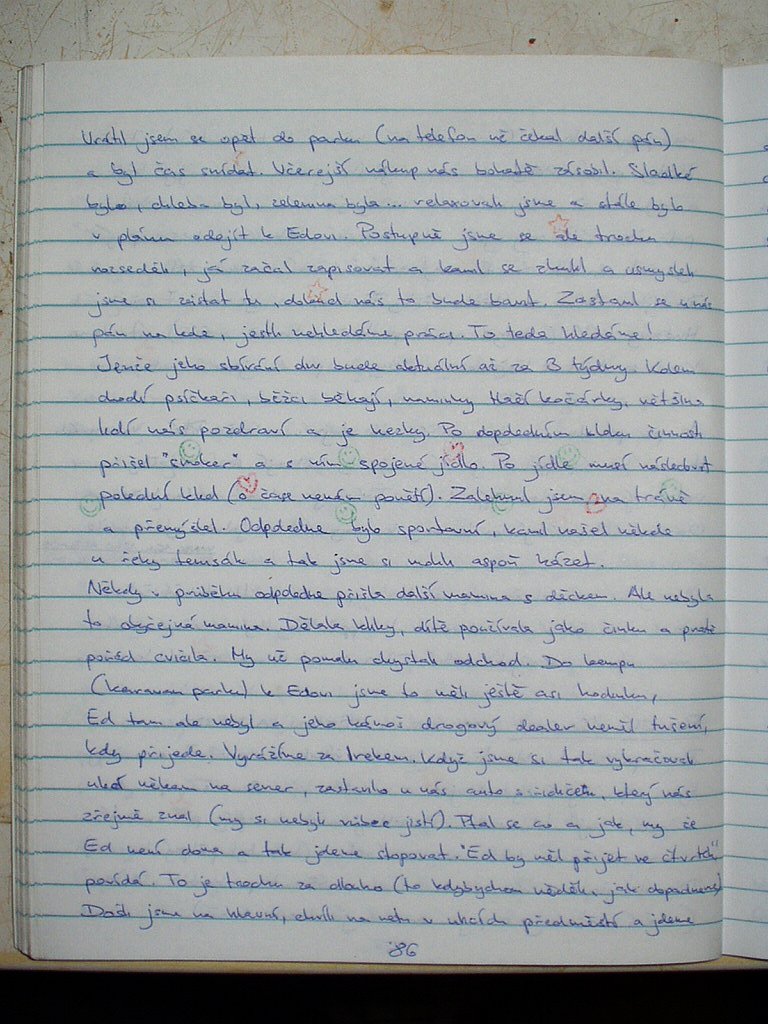 Vrátil jsem se opět do parku (na telefon už čekal další pán)
a byl čas snídat. Včerejší nákup nás bohatě zásobil. Sladké
bylo, chleba byl, zelenina byla... relaxovali jsme a stále bylo
v plánu odejít k Edovi. Postupně jsme se ale trochu
rozseděli, já začal zapisovat a kamil se zhulil a usmysleli
jsme si zůstat tu, dokud nás to bude bavit. Zastavil se u nás
pán na kole, jestli nehledáme práci. To teda hledáme!
Jenže jeho sbírání dnv bude aktuální až za 3 týdny. Kolem
chodí psíčkaři, běžci běhají, maminky tlačí kočárky. většina
lidí nás pozdraví a je hezky. Po dopoledním klidu činnosti
přišel "smoker" a s ním spojené jídlo. Po jídle musí následovat
polední klid (o čase nemám ponětí). Zalehnul jsem na trávě
a přemýšlel. Odpoledne bylo sportovní, kamil našel někde
u řeky temsák a tak jsme si mohli aspoň házet.
Někdy v průběhu odpoledne přišla další mamina s děckem. Ale nebyla
to obyčejná mamina. Dělala kliky, dítě používala jako činku a prostě
pořád cvičila. My už pomalu chystali odchod. Do kempu
(karavan parku) k Edovi jsme to měli ještě asi hodinku,
Ed tam ale nebyl a jeho kámoš drogový dealer neměl tušení,
kdy přijede. Vyrážíme za Irekem. Když jsme si tak vykračovali
ulicí někam na sever, zastavilo u nás auto s řidičem, který nás
zřejmě znal (my si nebyli vůbec jistí). Ptal se co a jak, my že
Ed není doma a tak jdeme stopovat. "Ed by měl přijet ve čtvrtek"
povídá. To je trochu za dlouho (to kdybychom věděli, jak dopadneme)
Došli jsme na hlavní, chvíli na netu v ulicích předměstí a jdeme
86